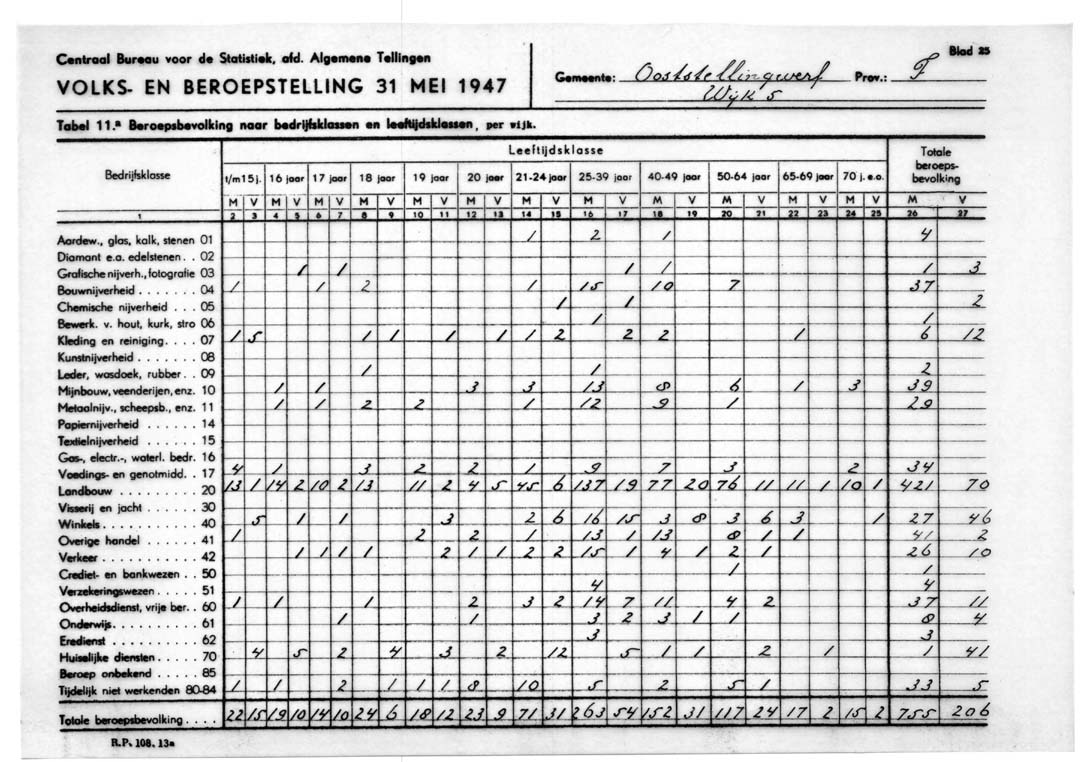 Blad 25
Centraal Bureau voor de Statistiek, afd. Algemene Tellingen
VOLKS- EN BEROEPSTELLING 31 MEI 1947
Gemeente: Ooststellingwerf Prov.: F
Wijk 5
Tabel 11.ª Beroepsbevolking naar bedrijfsklassen en leeftijdsklassen, per wijk.
Bedrijfsklasse Leeftijdsklasse Totale beroeps-bevolking
t/m 15 j. 16 jaar 17 jaar 18 jaar 19 jaar 20 jaar 21-24 jaar 25-39 jaar 40-49 jaar 50-64 jaar 65-69 jaar 70 j. e.o.
M V M V M V M V M V M V M V M V M V M V M V M V M V
1 2 3 4 5 6 7 8 9 10 11 12 13 14 15 16 17 18 19 20 21 22 23 24 25 26 27
Aardew., glas, kalk, stenen 01 1 2 1 4
Diamant e.a. edelstenen . . 02
Grafische nijverh., fotografie 03 1 1 1 1 1 3
Bouwnijverheid . . . . . . . 04 1 1 2 1 15 10 7 37
Chemische nijverheid . . . 05 1 1 2
Bewerk. v. hout, kurk, stro 06 1 1
Kleding en reiniging . . . . 07 1 5 1 1 1 1 1 2 2 2 1 6 12
Kunstnijverheid . . . . . . 08
Leder, wasdoek, rubber . . 09 1 1 2
Mijnbouw, veenderijen, enz. 10 1 1 3 3 13 8 6 1 3 39
Metaalnijv., scheepsb., enz. 11 1 1 2 2 1 12 9 1 29
Papiernijverheid . . . . . . 14
Textielnijverheid . . . . . . 15
Gas-, electr.-, waterl. bedr. 16
Voedings- en genotmidd. . 17 4 1 3 2 2 1 9 7 3 2 34
Landbouw . . . . . . . . . 20 13 1 14 2 10 2 13 11 2 4 5 45 6 137 19 77 20 76 11 11 1 10 1 421 70
Visserij en jacht . . . . . . 30
Winkels . . . . . . . . . . 40 5 1 1 3 2 6 16 15 3 8 3 6 3 1 27 46
Overige handel . . . . . . 41 1 2 2 1 13 1 13 8 1 1 41 2
Verkeer . . . . . . . . . . 42 1 1 1 1 2 1 1 2 2 15 1 4 1 2 1 26 10
Crediet- en bankwezen . . 50 1 1
Verzekeringswezen . . . . . 51 4 4
Overheidsdienst, vrije ber. . 60 1 1 1 2 3 2 14 7 11 4 2 37 11
Onderwijs . . . . . . . . . 61 1 1 3 2 3 1 1 8 4
Eredienst . . . . . . . . . 62 3 3
Huiselijke diensten . . . . . 70 4 5 2 4 3 2 12 5 1 1 2 1 1 41
Beroep onbekend . . . . . 85
Tijdelijk niet werkenden 80-84 1 1 2 1 1 1 8 10 5 2 5 1 33 5
Totale beroepsbevolking . . . . 22 15 19 10 14 10 24 6 18 12 23 9 71 31 263 54 152 31 117 24 17 2 15 2 755 206
R.P. 108. 13a